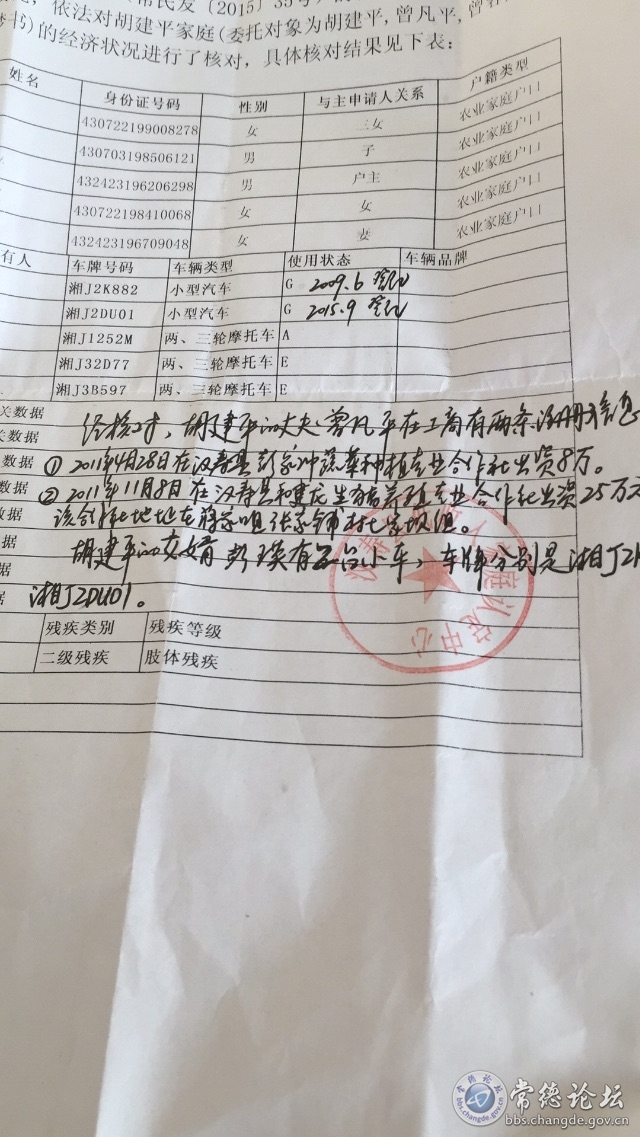 常民发〔2015〕35号
，依法对胡建平家庭(委托对象为胡建平,曾凡平,曾
书)的经济状况进行了核对，具体核对结果见下表：
姓名 身份证号码 性别 与主申请人关系 户籍类型
430722199008278 女 三女 农业家庭户口
430703198506121 男 子 农业家庭户口
432423196206298 男 户主 农业家庭户口
430722198410068 女 女 农业家庭户口
432423196709048 女 妻 农业家庭户口
有人 车牌号码 车辆类型 使用状态 车辆品牌
湘J2K882 小型汽车 G 2009.6 登记
湘J2DU01 小型汽车 G 2015.9 登记
湘J1252M 两、三轮摩托车 A
湘J32D77 两、三轮摩托车 E
湘J3B597 两、三轮摩托车 E
关数据 经核对，胡建平的丈夫曾凡平在工商有两条注册信息
数据 ①2011年4月28日在汉寿县彭家冲蔬菜种植专业合作社出资8万。
数据 ②2011年11月8日在汉寿县和建龙生猪养殖专业合作社出资25万元
数据 该合作社地址在蒋家咀张家铺村
据 胡建平的女婿彭瑛有 台小车，车牌分别是湘J2K
据 湘J2DU01。
残疾类别 残疾等级
二级残疾 肢体残疾
认定中心
常德论坛
bbs.changde.gov.cn